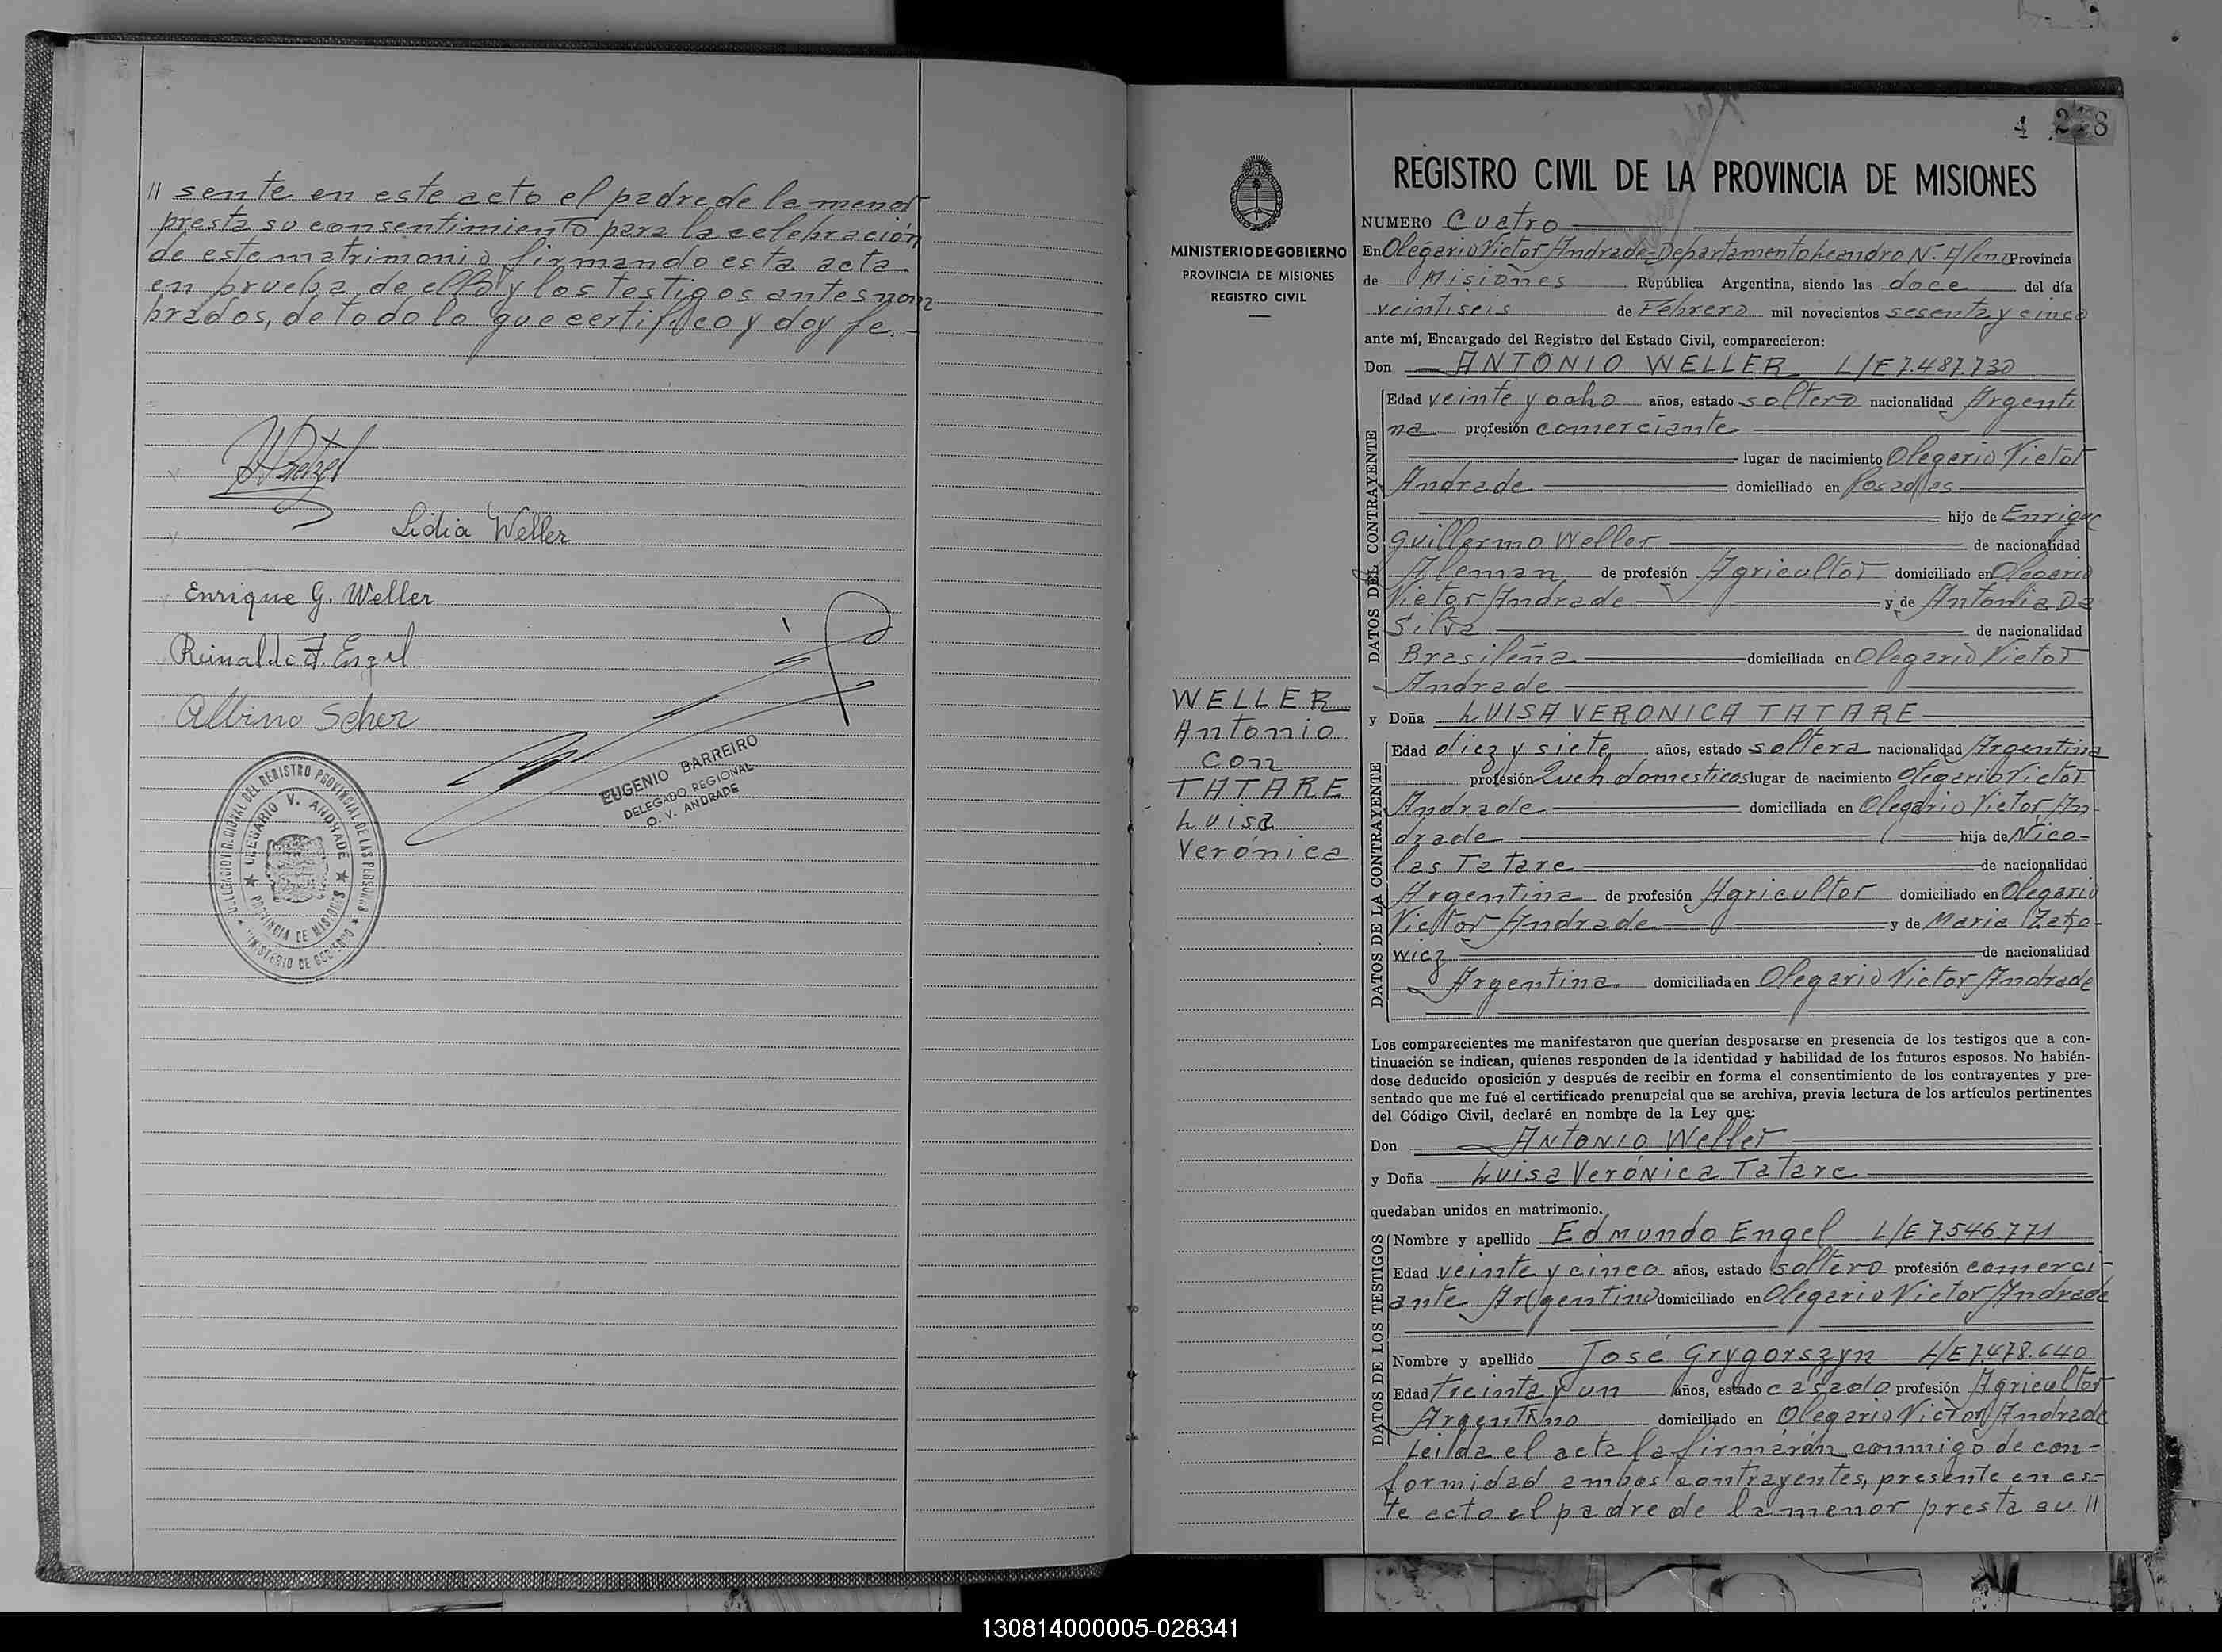 // sente en este acto el padre de la menor
presta su consentimiento para la celebración
de este matrimonio firmando esta acta
en prueba de ello y los testigos antes nom
brados, de todo lo que certifico y doy fe.-
Lidia Weller
Enrique G. Weller
Reinaldo F. Engel
Albino Scher
EUGENIO BARREIRO
DELEGADO REGIONAL
O. V. ANDRADE
DELEGACION REGIONAL DEL REGISTRO PROVINCIAL DE LAS PERSONAS
OLEGARIO V. ANDRADE
PROVINCIA DE MISIONES
MINISTERIO DE GOBIERNO
MINISTERIO DE GOBIERNO
PROVINCIA DE MISIONES
REGISTRO CIVIL
WELLER
Antonio
con
TATARE
Luisa
Verónica
4 8
REGISTRO CIVIL DE LA PROVINCIA DE MISIONES
NUMERO Cuatro
En Olegario Victor Andrade-Departamento Leandro N. Alem Provincia
de Misiones República Argentina, siendo las doce del día
veintiseis de Febrero mil novecientos sesenta y cinco
ante mí, Encargado del Registro del Estado Civil, comparecieron:
Don ANTONIO WELLER L/E 7.487.730
DATOS DEL CONTRAYENTE
Edad veinte y ocho años, estado soltero nacionalidad Argenti
na profesión comerciante
lugar de nacimiento Olegario Victor
Andrade domiciliado en Posadas
hijo de Enrique
Guillermo Weller de nacionalidad
Aleman de profesión Agricultor domiciliado en Olegario
Victor Andrade y de Antonia Da
Silva de nacionalidad
Brasileña domiciliada en Olegario Victor
Andrade
y Doña LUISA VERONICA TATARE
DATOS DE LA CONTRAYENTE
Edad diez y siete años, estado soltera nacionalidad Argentina
profesión Queh. domesticos lugar de nacimiento Olegario Victor
Andrade domiciliada en Olegario Victor An-
drade hija de Nico-
las Tatare de nacionalidad
Argentina de profesión Agricultor domiciliado en Olegario
Victor Andrade y de Maria
wicz de nacionalidad
Argentina domiciliada en Olegario Victor Andrade
Los comparecientes me manifestaron que querían desposarse en presencia de los testigos que a con-
tinuación se indican, quienes responden de la identidad y habilidad de los futuros esposos. No habién-
dose deducido oposición y después de recibir en forma el consentimiento de los contrayentes y pre-
sentado que me fué el certificado prenupcial que se archiva, previa lectura de los artículos pertinentes
del Código Civil, declaré en nombre de la Ley que:
Don Antonio Weller
y Doña Luisa Verónica Tatare
quedaban unidos en matrimonio.
DATOS DE LOS TESTIGOS
Nombre y apellido Edmundo Engel L/E 7.546.771
Edad veinte y cinco años, estado soltero profesión comerci-
ante Argentino domiciliado en Olegario Victor Andrade
Nombre y apellido José Grygorszyn L/E 7.478.640
Edad treinta y un años, estado casado profesión Agricultor
Argentino domiciliado en Olegario Victor Andrade
Leilda el acta la firmarón conmigo de con-
formidad ambos contrayentes, presente en es-
te acto el padre de la menor presta su //
130814000005-028341